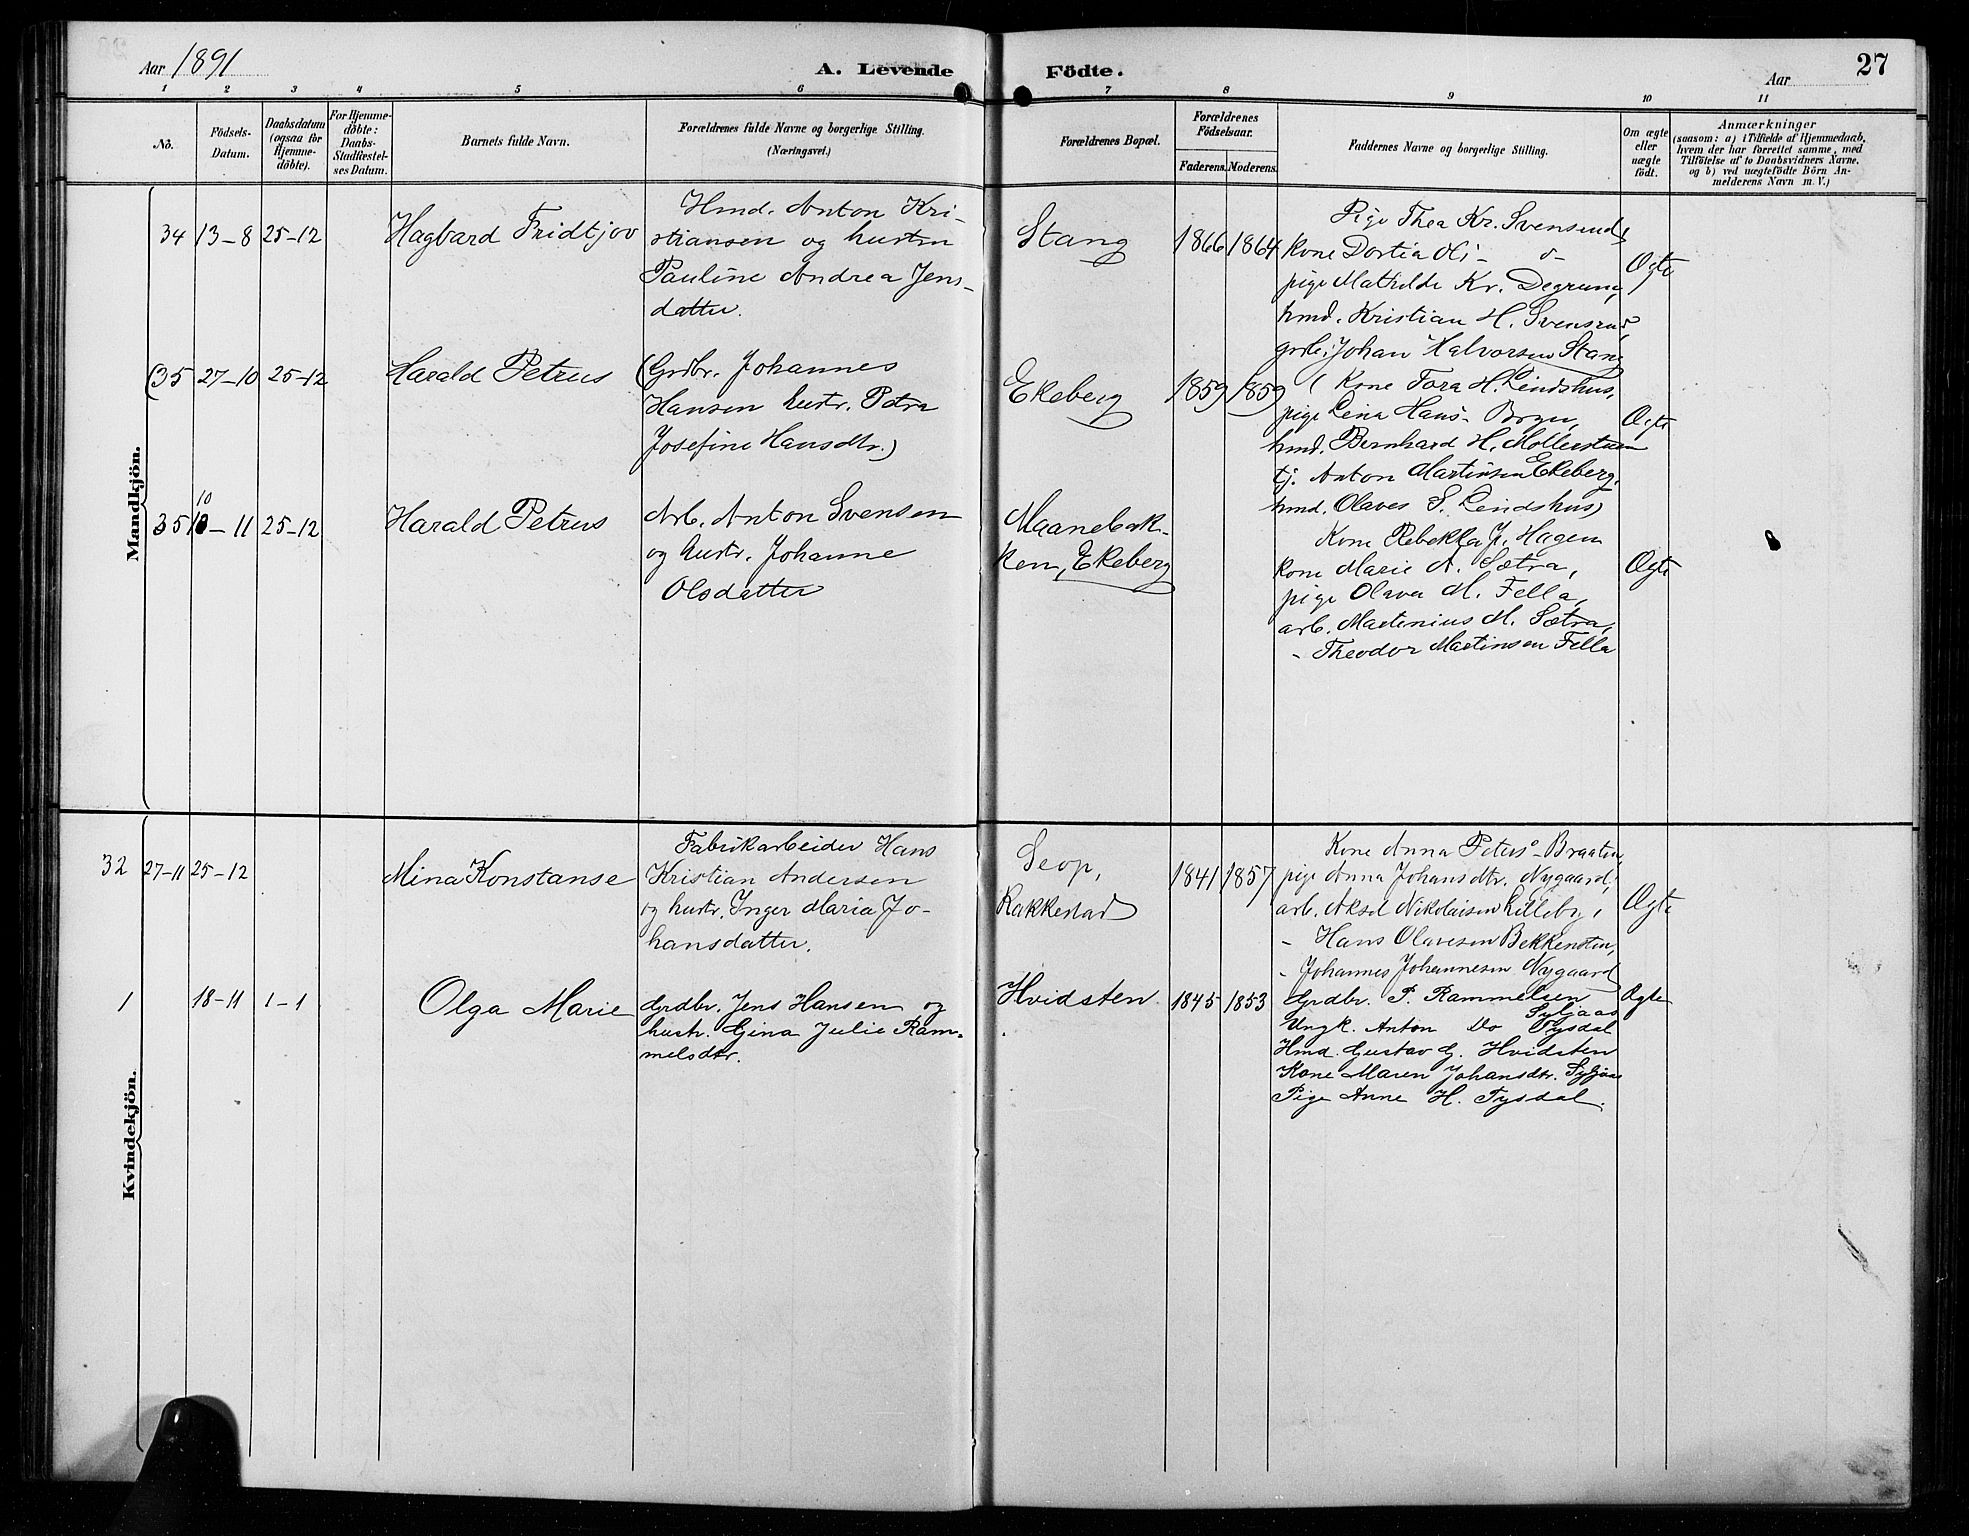 Aar 1891
A. Levende
Födte.
Aar
27
1 2 3 4 5 6 7 8 9 10 11
No.
Födsels-
Datum.
Daabsdatum
(ogsaa for
Hjemme-
döbte).
For Hjemme-
döbte:
Daabs-
Stadfæstel-
ses Datum.
Barnets fulde Navn.
Forældrenes fulde Navne og borgerlige Stilling.
(Næringsvei.)
Forældrenes Bopæl.
Forældrenes
Födselsaar.
Faderens. Moderens.
Faddernes Navne og borgerlige Stilling.
Om ægte
eller
uægte
födt.
Anmærkninger
(saasom: a) i Tilfælde af Hjemmedaab,
hvem der har forrettet samme, med
Tilföielse af to Daabsvidners Navne,
og b) ved uægtefödte Börn An-
melderens Navn m. V.)
Mandkjön.
34 13-8 25-12
Hagbard Fridtjov
Hmd. Anton Kri-
stiansen og hustru
Pauline Andrea Jens-
datter.
Stang
1866 1864
Pige Thea Kr. Svensrud
kone Dortia
pige Mathilde Kr. Degrum,
hmd. Kristian H. Svensrud
grdbr. Johan Halvorsen Stang
Ægte
(35 27-10 25-12
Harald Petrus
(Grdbr. Johannes
Hansen hustr. Petra
Josefine Hansdtr.)
Ekeberg
1859 1859
(Kone Tora H. Lindshus,
pige Lina Hans- Bryn,
hmd. Bernhard H. Möllerstuen
tj. Anton Martinsen Ekeberg,
hmd. Olaves S. Lindshus)
Ægte
35 10-11 25-12
Harald Petrus
Arb. Anton Svensen
og hustr. Johanne
Olsdatter
Maanebak-
ken, Ekeberg
Kone Rebekka J. Hagen
kone Marie A. Sætra,
pige Olava M. Fella,
arb. Martinius M. Sætra,
- Theodor Martinsen Fella
Ægte
Kvindekjön.
32 27-11 25-12
Mina Konstanse
Fabrikarbeider Hans
Kristian Andersen
og hustr. Inger Maria Jo-
hansdatter.
Seop,
Rakkestad
1841 1857
Kone Anna Peters- Braaten,
pige Anna Johansdtr. Nygaard,
arb. Aksel Nikolaisen Lilleby,
- Hans Olavesen Bekkensten,
- Johannes Johannesen Nygaard
Ægte
1 18-11 1-1
Olga Marie
Grdbr. Jens Hansen og
hustr. Gina Julie Ram-
melsdtr.
Hvidsten
1845 1853
Grdbr. P. Rammelsen
Syljaas
Ungk. Anton Do Tysdal
Hmd. Gustav G. Hvidsten
Kone Maren Johansdtr. Syljaas
Pige Anne H. Tysdal.
Ægte